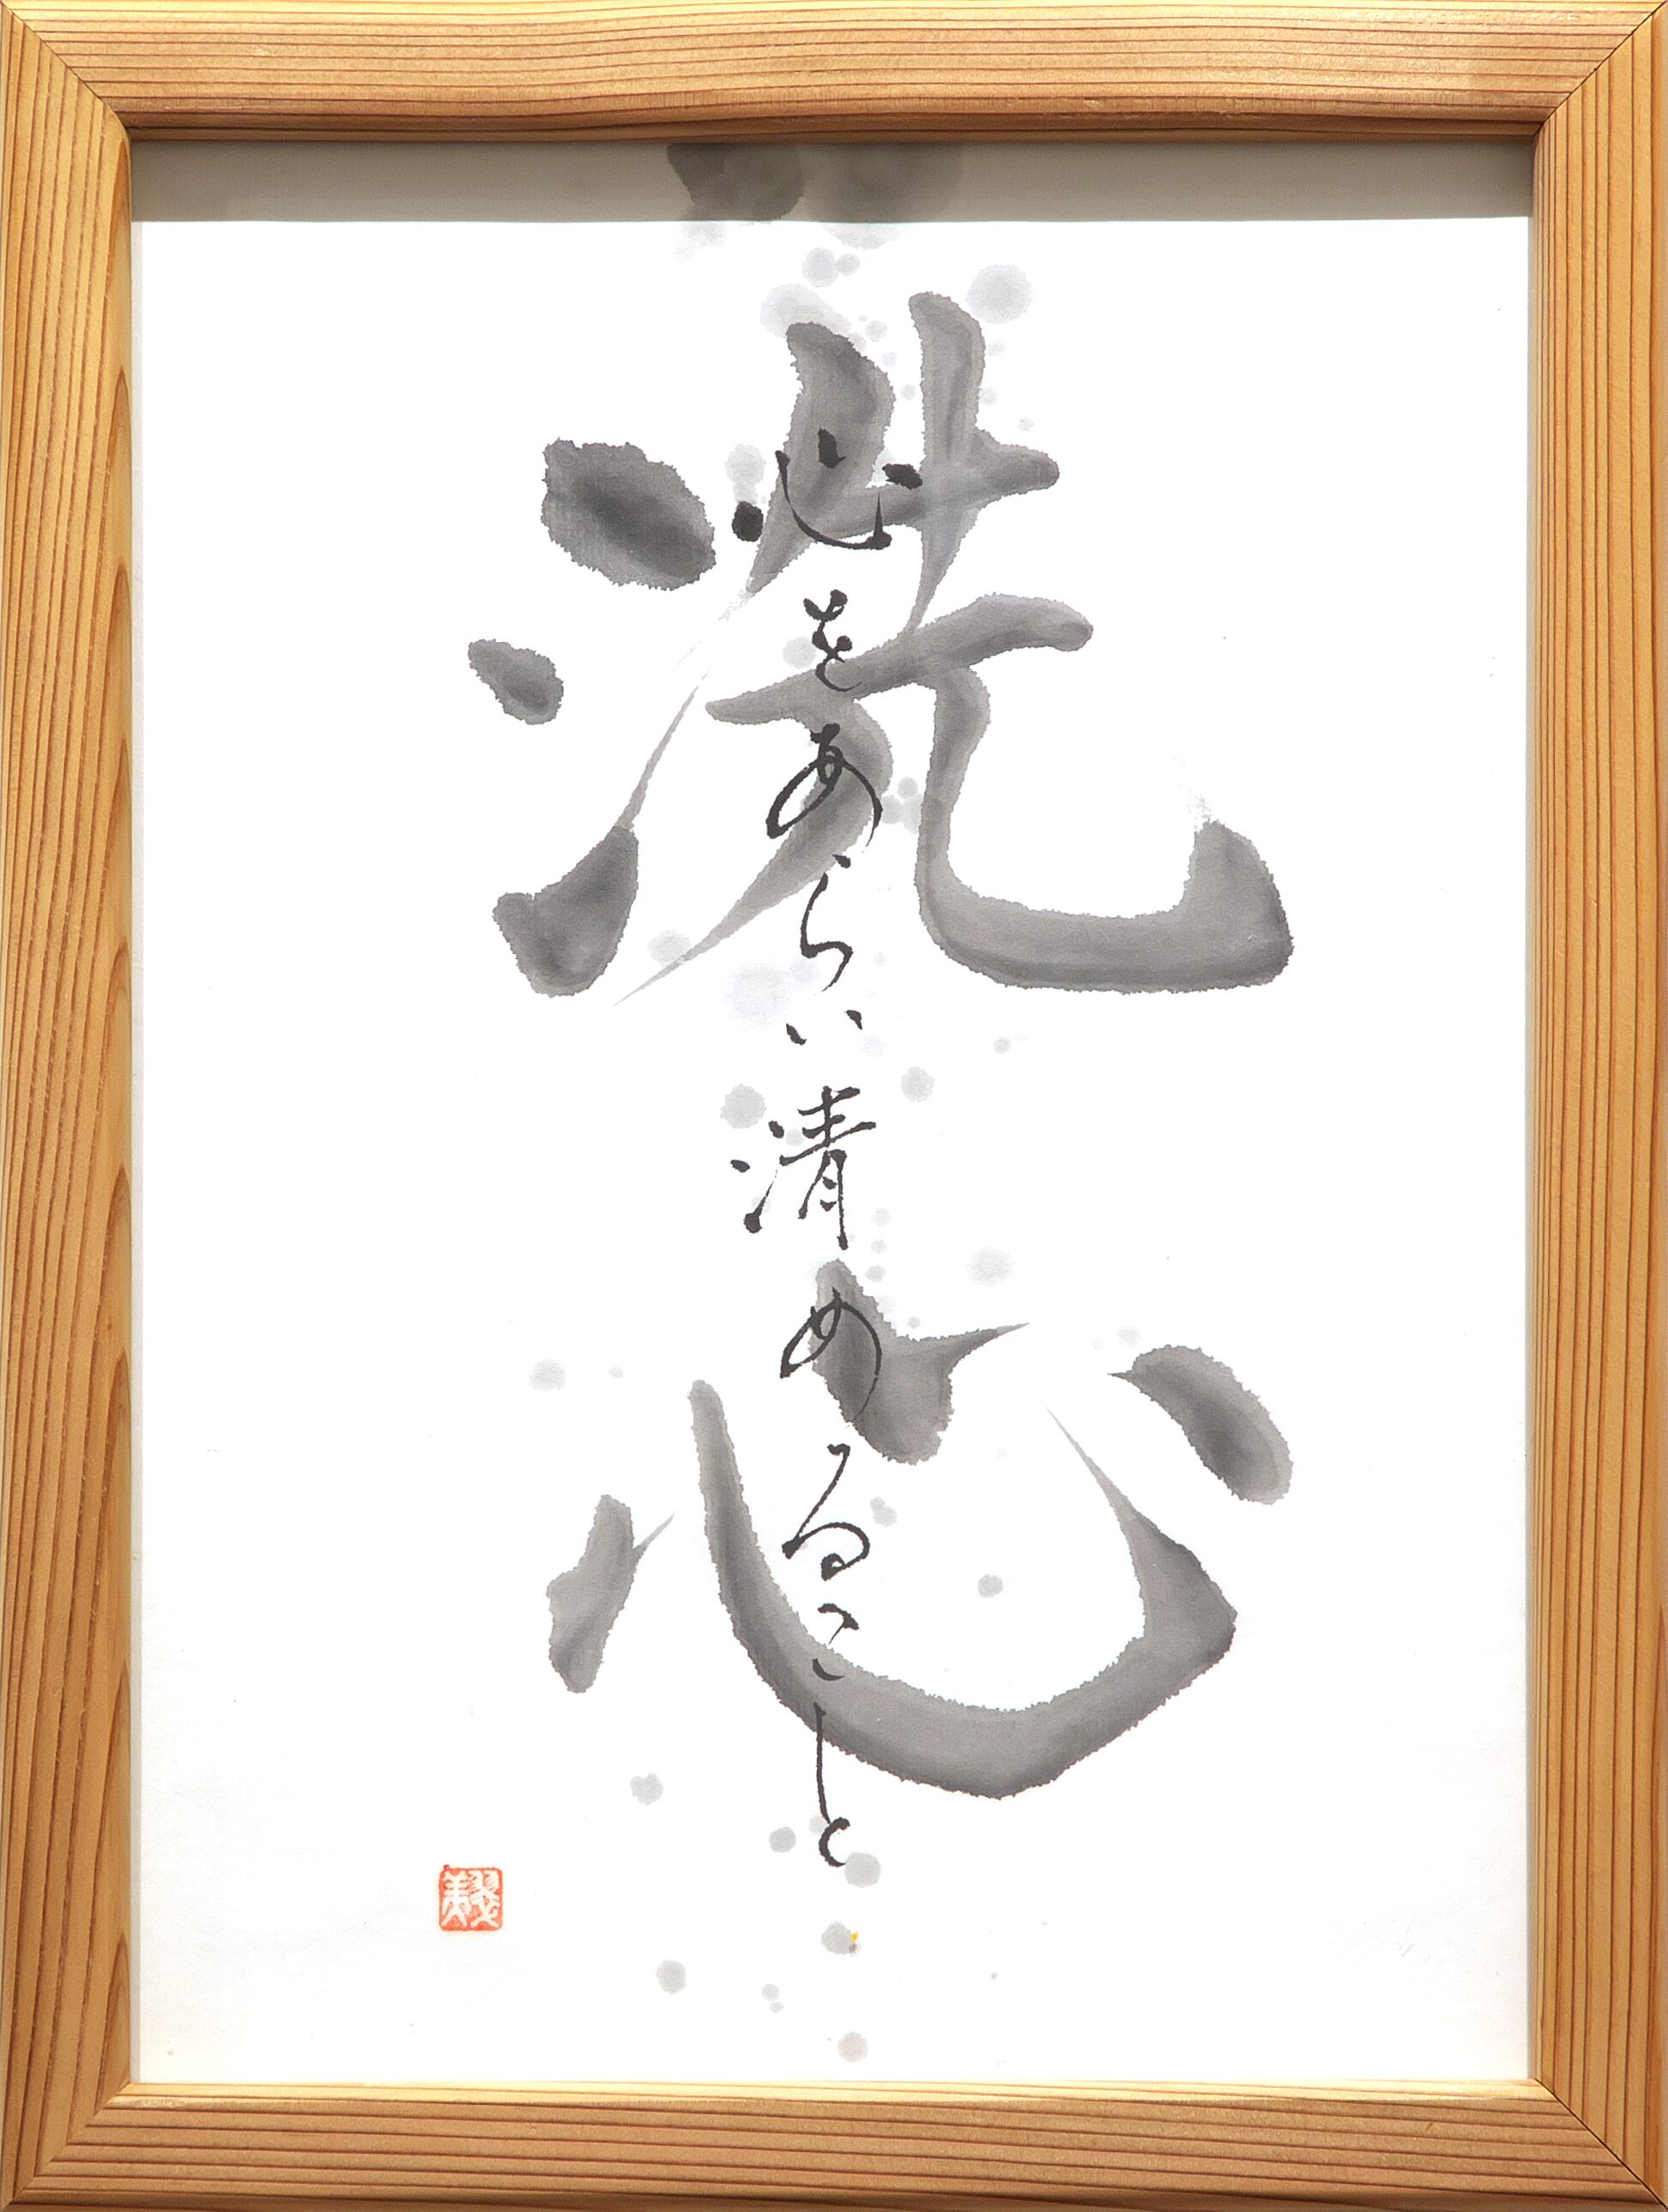 洗心
心をあらい清めること